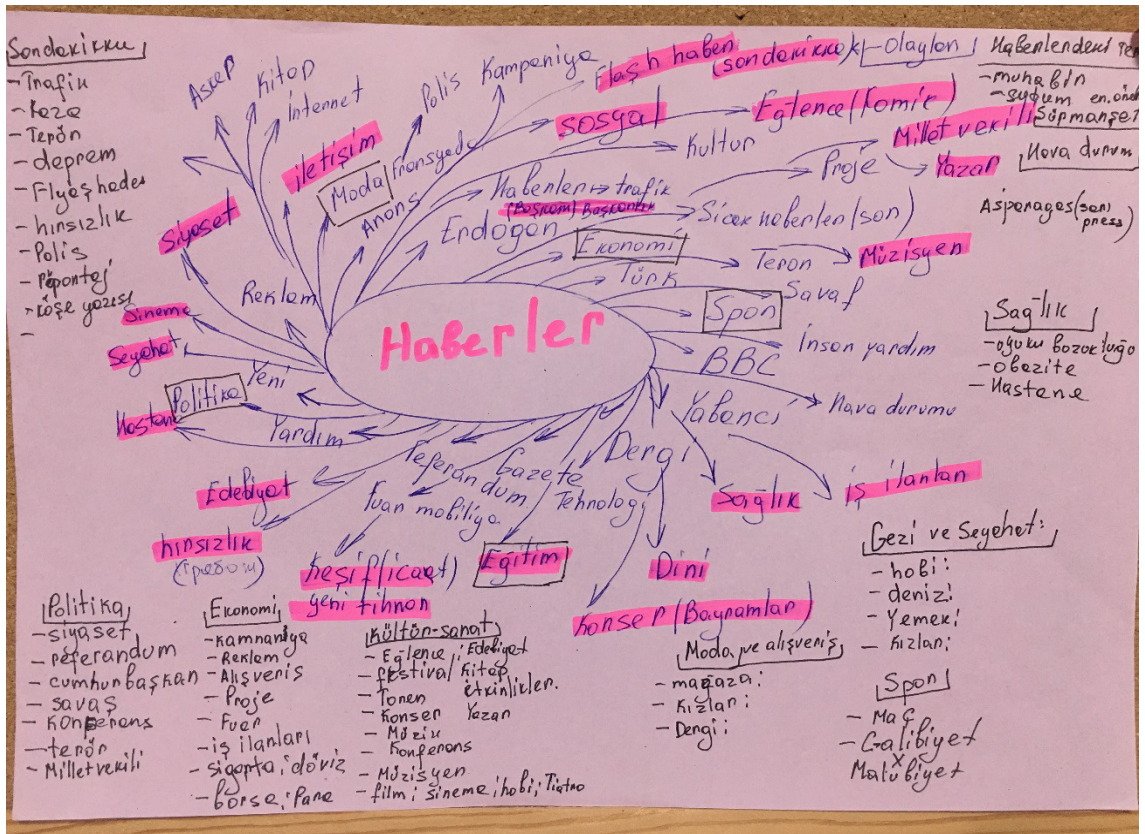 Sondakikku
- Trafik
- Kaza
- Terör
- deprem
- Flyaşhades
- hırsızlık
- Polis
- Röpontaj
- Köşe yazısı
-
Asker
Kitap
İnternet
iletişim
Moda
Polis
Kampaniya
Fransyeda
Anons
Flaşh haben
(sondakikka)
-Olaylar
sosyal
Eğlence/(Komik)
Kultur
Millet vekili
Proje
Yazar
Habenlendeki
- muhabin
Sürmanşet
Hava durum
Asparages(sarı press)
Siyaset
Habenler → trafik
(Başkan) Başkanlık
Erdoğan
Sicak haberlen (son)
Ekonomi
Teron
Müzisyen
Türk
Savaş
Reklam
Sineme
Seyehat
Haberler
Spon
İnsan yardım
BBC
Sağlık
- oyuku bozukluğo
- obezite
- Hastane
Yeni
Politika
Hastane
Yardım
Yabancı
Hava durumu
Referandum
Gazete
Dergi
Edebiyat
Fuar mobiliya
Tehnologi
Sağlık
iş ilanlan
hırsızlık
(грабеж)
keşif(icaat)
yeni fihnon
Eğitim
Dini
Konser (Bayramlar)
Gezi ve Seyehat:
- hobi:
- denizi
- Yemek;
- kızlan;
Politika
- siyaset
- referandum
- cumhurbaşkan
- savaş
- Konferens
- terör
- Milletvekili
Ekonomi
- Kamnaniya
- Reklam
- Alışveris
- Proje
- Fuar
- iş ilanları
- sigorta; döviz
- borse; Pane
Kültür-sanat
- Eğlence; Edebiyat
- festival kitap
- Tonen etkinliklen.
- Konser Yazar
- Müzik
- Konferons
- Müzisyen
- film; sineme; hobi; Tiatno
Moda ve alışveriş
- mağaza:
- kızlar;
- Dengi:
Spon
- Maç
- Galibiyet
x
Malübiyet